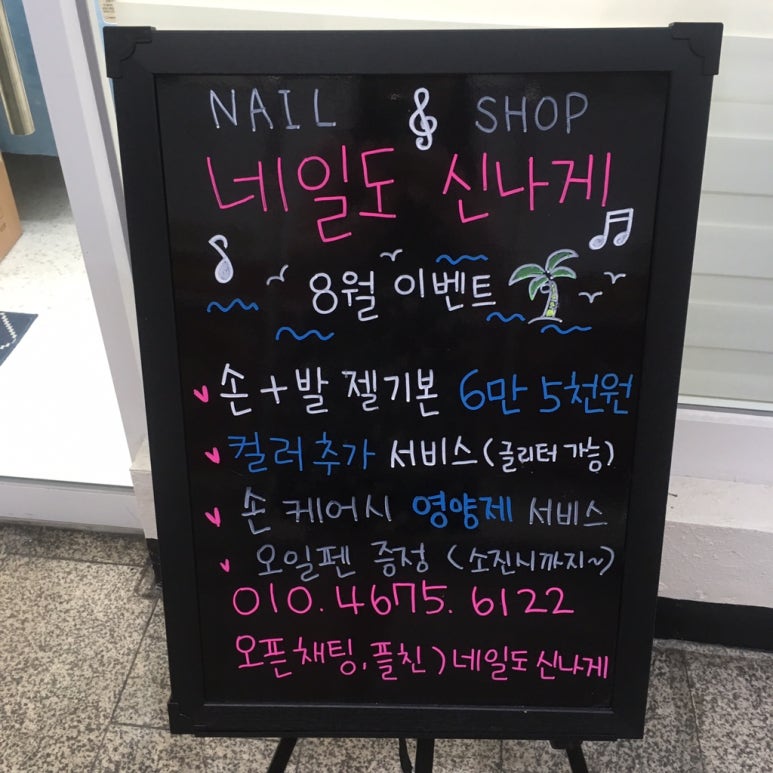 NAIL SHOP
네일도 신나게
8월 이벤트
손+발 젤기본 6만 5천원
컬러추가 서비스(글리터가능)
손 케어시 영양제 서비스
오일펜 증정 (소진시까지~)
010.4675.6122
오픈채팅.플친)네일도신나게